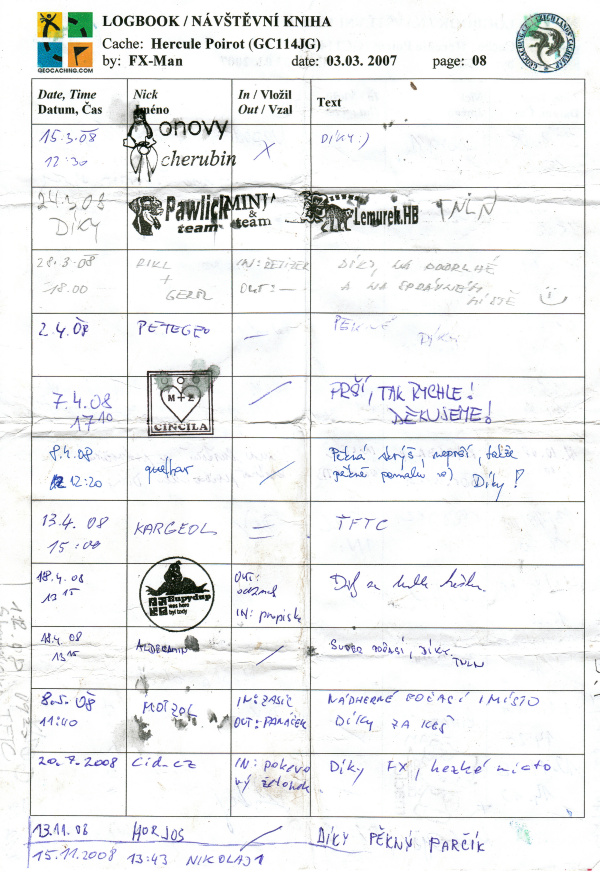 LOGBOOK / NÁVŠTĚVNÍ KNIHA
Cache: Hercule Poirot (GC114JG)
by: FX-Man date: 03.03. 2007 page: 08
GEOCACHING.COM
Date, Time Nick In / Vložil Text
Datum, Čas Jméno Out / Vzal
15.3.08 onovy DÍKY:)
12:30 cherubin X
24.3.08 Pawlick team MINI & team Lemurek.HB TNLN
DÍKY
28.3.08 RIKI IN: ŘETÍZEK DÍKY, NA PODRUHÉ
18.00 + OUT: — A NA SPRÁVNÉM
MÍSTĚ
2.4.08 PETEGEO — PĚKNÉ
DÍKY
7.4.08 M+Z / PRŠÍ, TAK RYCHLE!
17 10 CINCILA DĚKUJEME!
8.4.08 / Pěkná skrýš, neprší, takže
12:20 pěkně pomalu Díky!
13.4.08 KARGEOL = TFTC
15:00
18.4.08 Eupydup OUT:
13 15 was here IN: propiska
byl tady
18.4.08 ALDEBARAN / SUPER POČASÍ, DÍKY,
13 15 TNLN
8.5.08 MOIZOL IN: ZAJÍC NÁDHERNÉ POČASÍ I MÍSTO
11:40 OUT: PANÁČEK DÍKY ZA KEŠ
20.7.2008 Cid-cz IN: pokovo Díky FX, hezké místo
vý
13.11.08 HORJOS / DÍKY PĚKNÝ PARČÍK
15.11.2008 13:43 NIKOLAJ1